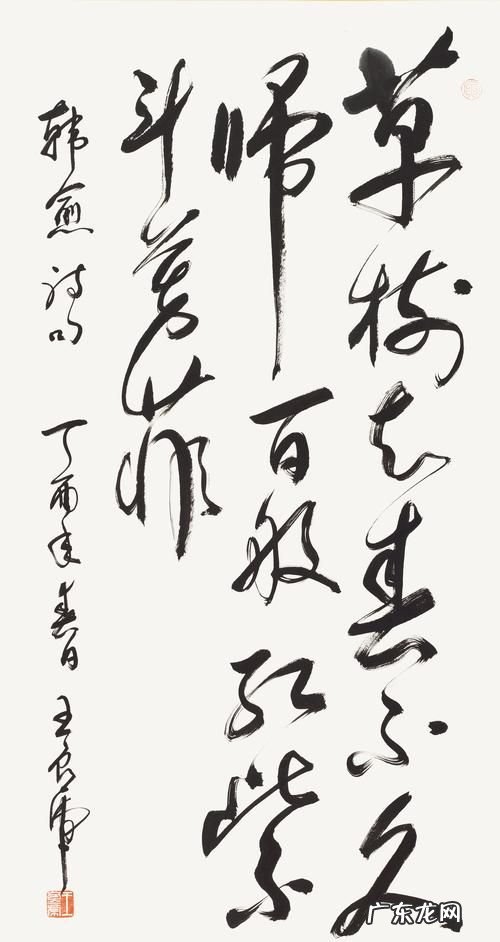 草树知春不久
归百般红紫
斗芳菲
韩愈诗句 丁酉年春日 王良虎
广东龙网